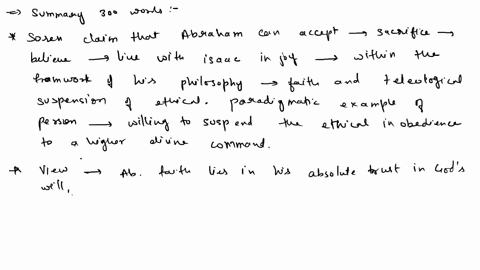 => Summary 300 words :-
* Soren claim that Abraham can accept → sacrifice →
believe → live with isaac in joy → within the
framwork of his philosophy → faith and teleological
suspension of ethical. paradigmatic example of
person → willing to suspend the ethical in obedience
to a higher divine command.
* View → Ab. faith lies in his absolute trust in God's
will,